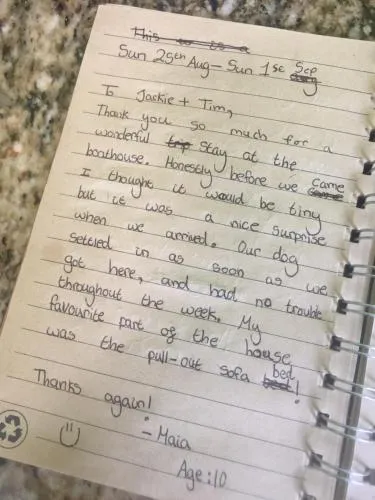 This is a
Sun 25th Aug – Sun 1st Sep
To Jackie + Tim,
Thank you so much for a
wonderful trip stay at the
boathouse. Honestly before we came
I thought it would be tiny
but it was a nice surprise
when we arrived. Our dog
settled in as soon as we
got here, and had no trouble
throughout the week. My
favourite part of the house
was the pull-out sofa bed!
Thanks again!
- Maia
Age: 10